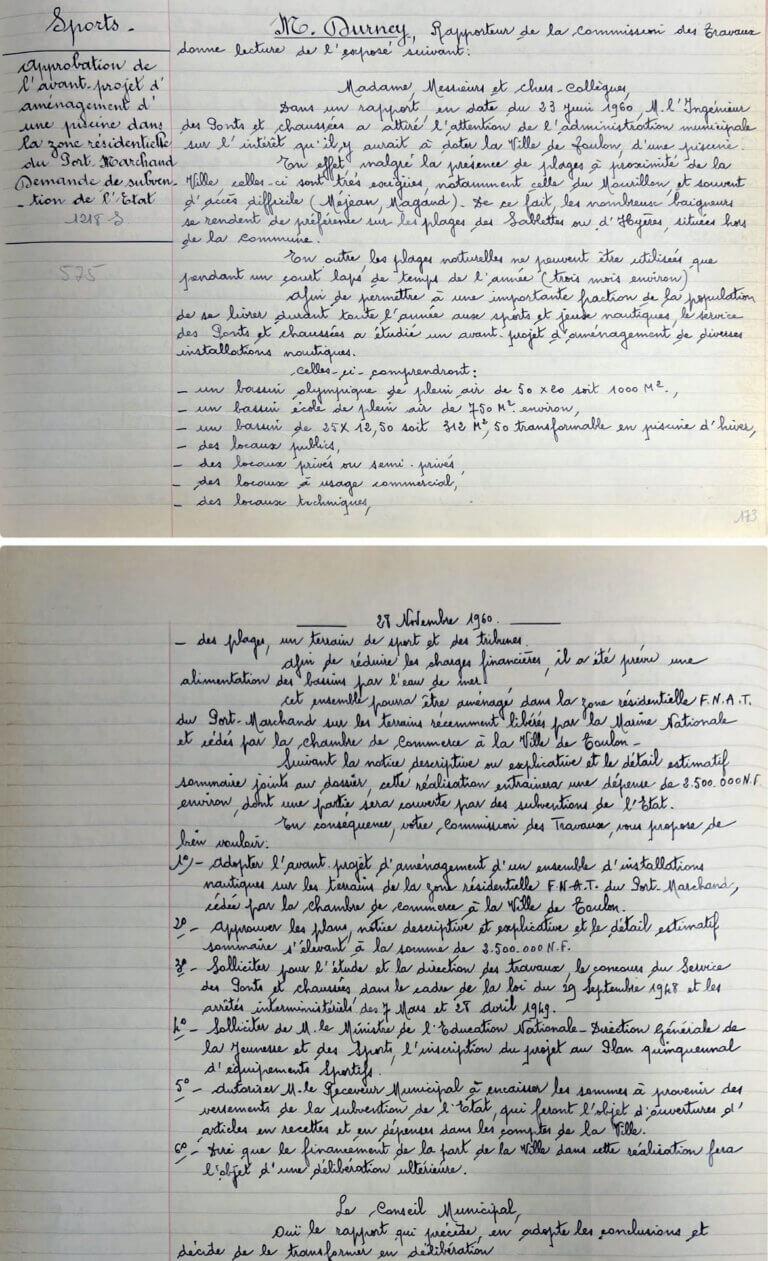 Sports -
Approbation de
l'avant-projet d'
aménagement d'
une piscine dans
la zone résidentielle
du Port. Marchand
Demande de subven-
-tion de l'Etat
1218 S
575
M. Durney, Rapporteur de la Commission des Travaux
donne lecture de l'exposé suivant:
Madame, Messieurs et chers-Collègues,
Dans un rapport en date du 23 juin 1960, M. l'Ingénieur
des Ponts et chaussées a attiré l'attention de l'administration municipale
sur l'intérêt qu'il y aurait à doter la Ville de Toulon, d'une piscine.
En effet, malgré la présence de plages à proximité de la
Ville, celles-ci sont très exigües, notamment celle du Mourillon, et souvent
d'accès difficile (Méjean, Magaud). De ce fait, les nombreux baigneurs
se rendent de préférence sur les plages des Sablettes ou d'Hyères, situées hors
de la commune.
En outre les plages naturelles ne peuvent être utilisées que
pendant un court laps de temps de l'année (trois mois environ)
Afin de permettre à une importante fraction de la population
de se livrer durant toute l'année aux sports et jeux nautiques, le service
des Ponts et chaussées a étudié un avant-projet d'aménagement de diverses
installations nautiques.
Celles-ci comprendront:
- un bassin olympique de plein air de 50 x 20 soit 1000 M².,
- un bassin école de plein air de 750 M² environ,
- un bassin de 25 X 12,50 soit 312 M²,50 transformable en piscine d'hiver,
- des locaux publics,
- des locaux privés ou semi-privés,
- des locaux à usage commercial,
- des locaux techniques,
173
28 Novembre 1960.
- des plages, un terrain de sport et des tribunes.
Afin de réduire les charges financières, il a été prévu une
alimentation des bassins par l'eau de mer.
Cet ensemble pourra être aménagé dans la zone résidentielle F.N.A.T.
du Port-Marchand sur les terrains récemment libérés par la Marine Nationale
et cédés par la Chambre de Commerce à la Ville de Toulon -
Suivant la notice descriptive ou explicative et le détail estimatif
sommaire joints au dossier, cette réalisation entrainera une dépense de 2.500.000 N.F.
environ, dont une partie sera couverte par des subventions de l'Etat.
En conséquence, votre Commission des Travaux, vous propose de
bien vouloir:
1°/- Adopter l'avant-projet d'aménagement d'un ensemble d'installations
nautiques sur les terrains de la zone résidentielle F.N.A.T. du Port-Marchand,
cédée par la Chambre de commerce à la Ville de Toulon.
2° - Approuver les plans, notice descriptive et explicative et le détail estimatif
sommaire s'élevant à la somme de 2.500.000 N.F.
3° - Solliciter pour l'étude et la direction des travaux, le concours du Service
des Ponts et chaussées dans le cadre de la loi du 29 Septembre 1948 et les
arrêtés interministériels des 7 Mars et 28 Avril 1949.
4° - Solliciter de M. le Ministre de l'Education Nationale - Direction Générale de
la Jeunesse et des Sports, l'inscription du projet au Plan quinquennal
d'équipements Sportifs.
5° - Autoriser M. le Receveur Municipal à encaisser les sommes à provenir des
versements de la subvention de l'Etat, qui feront l'objet d'ouvertures d'
articles en recettes et en dépenses dans les comptes de la Ville.
6° - Dire que le financement de la part de la Ville dans cette réalisation fera
l'objet d'une délibération ultérieure.
Le Conseil Municipal,
Ouï le rapport qui précède, en adopte les conclusions et
décide de le transformer en délibération